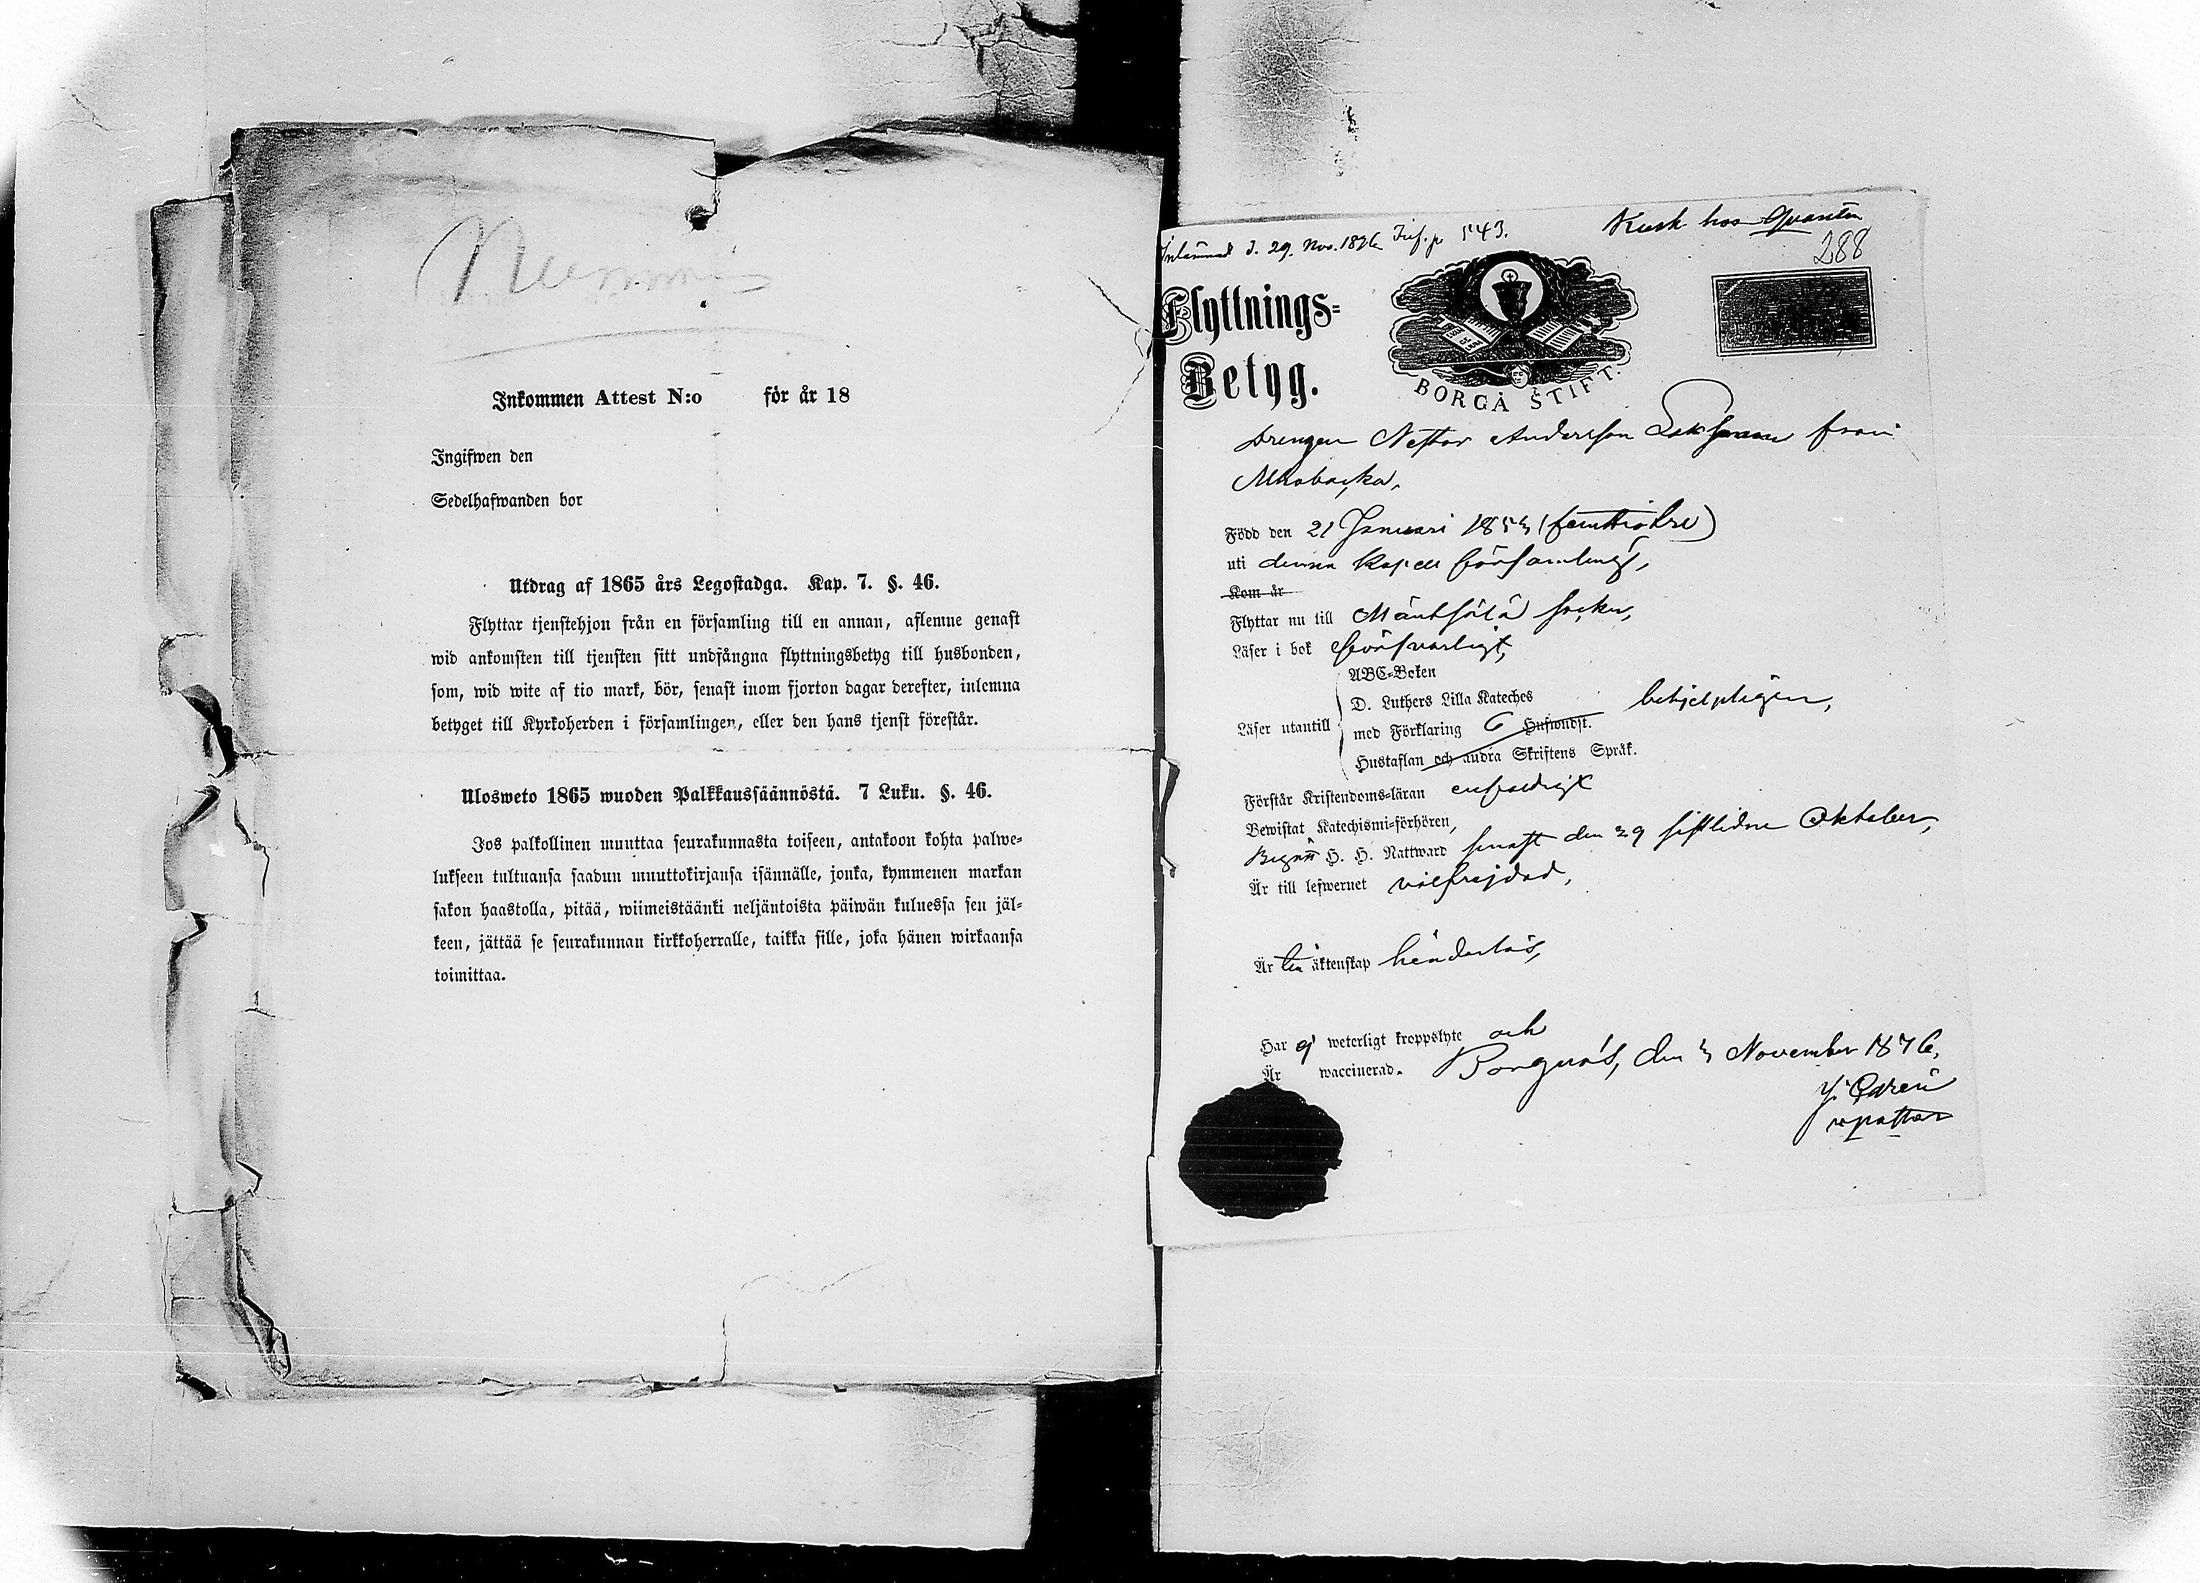 Nummis
Inkommen Attest N:o för år 18
Ingifwen den
Sedelhafwanden bor
Utdrag af 1865 års Legostadga. Kap. 7. §. 46.
Flyttar tjenstehjon från en församling till en annan, aflemne genast
wid ankomsten till tjensten sitt undfångna flyttningsbetyg till husbonden,
som, wid wite af tio mark, bör, senast inom fjorton dagar derefter, inlemna
betyget till Kyrkoherden i församlingen, eller den hans tjenst förestår.
Ulosweto 1865 wuoden Palkkaussäännöstä. 7 Luku. §. 46.
Jos palkollinen muuttaa seurakunnasta toiseen, antakoon kohta palwe-
lukseen tultuansa saadun muuttokirjansa isännälle, jonka, kymmenen markan
sakon haastolla, pitää, wiimeistäänki neljäntoista päiwän kuluessa sen jäl-
keen, jättää se seurakunnan kirkkoherralle, taikka sille, joka hänen wirkaansa
toimittaa.
Kusk hos Qvantén
Inlämnad d. 29. Nov. 1876 Inf. p 543.
288
Flyttnings-
Betyg.
BORGÅ STIFT.
Drengen Nestor Andersson från
Född den 21 Januari 1853 (femttiotre)
uti denna kapell församling,
Kom år
Flyttar nu till Mäntsälä socken,
Läser i bok försvarligt,
ABC-Boken
D. Luthers Lilla Kateches
Läser utantill med Förklaring 6 Hufwudst. behjelpligen,
Hustaflan och andra Skriftens Språk.
Förstår Kristendoms-läran enfaldigt
Bewistat Katechismi-förhören,
Begått H. H. Nattward senast den 29 sistlidne Oktober,
Är till lefwernet välfrejdad,
Är till äktenskap hinderlös,
Har ej weterligt kroppslyte och
Är waccinerad. Borgnäs, den 3 November 1876.